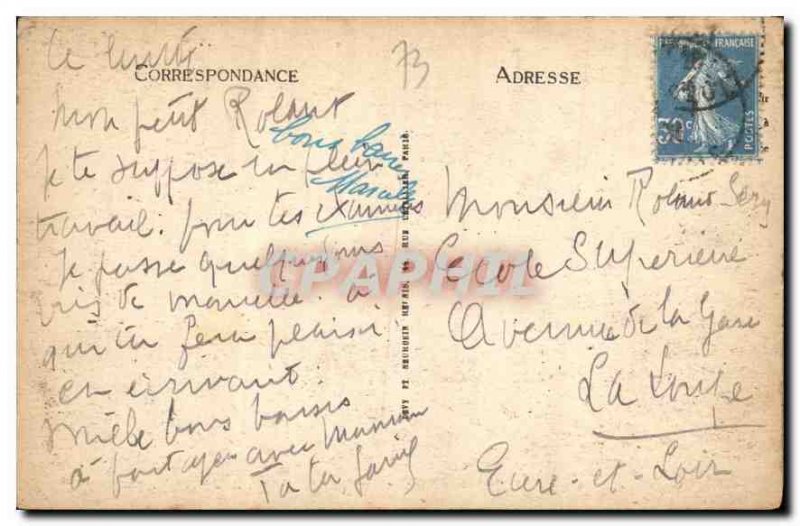 ce lundi
CORRESPONDANCE
73
ADRESSE
Mon petit Roland
bons baisers
Je te suppose en plein
travail. pour tes examens
Je passe quelques jours
près de Marcelle. à
qui tu feras plaisir
en écrivant.
Mille bons baisers
à partager avec maman
Monsieur Roland
École Supérieure
Avenue de la Gare
La Loupe
Eure-et-Loir
FRANÇAISE
POSTES
CPAPHIL